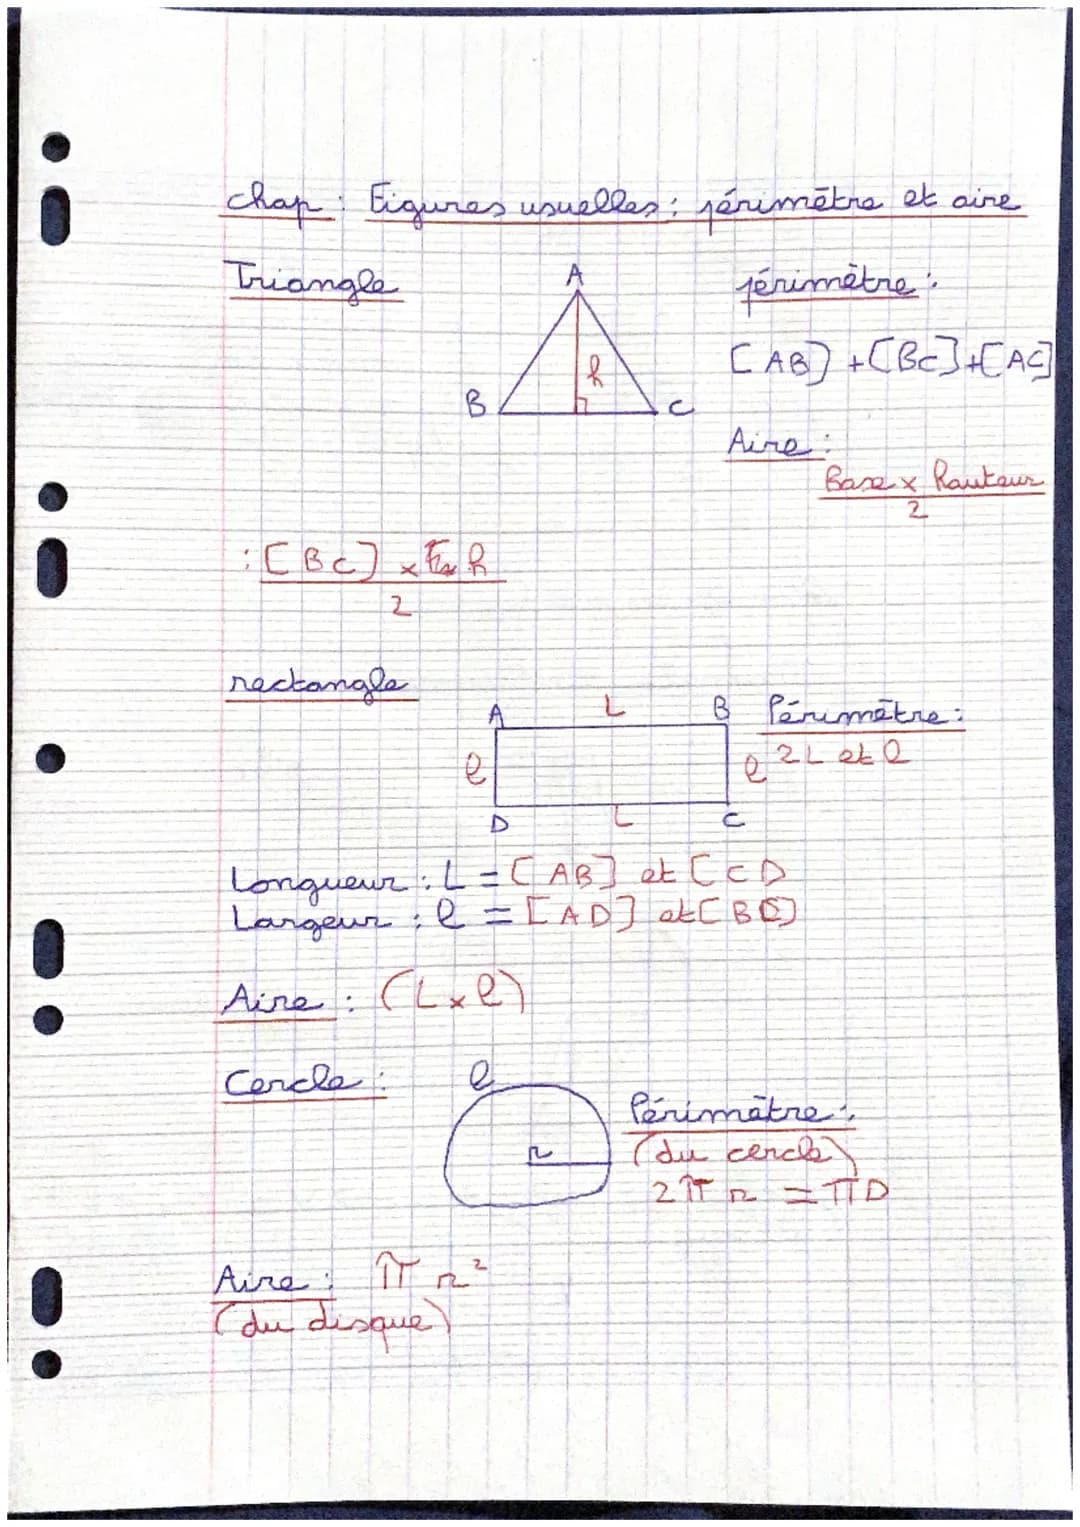 chap : Figures usuelles : périmètre et aire
Triangle
A
h
B
C
périmètre :
[AB] + [BC] + [AC]
Aire :
Base x hauteur
2
: [BC] x h
2
rectangle
A
L
B
l
l
D
L
C
Périmètre :
2L et l
Longueur : L = [AB] et [CD
Largeur : l = [AD] et [BC]
Aire : (L x l)
Cercle :
r
Périmètre :
(du cercle)
2π r = πD
Aire : π r²
(du disque)